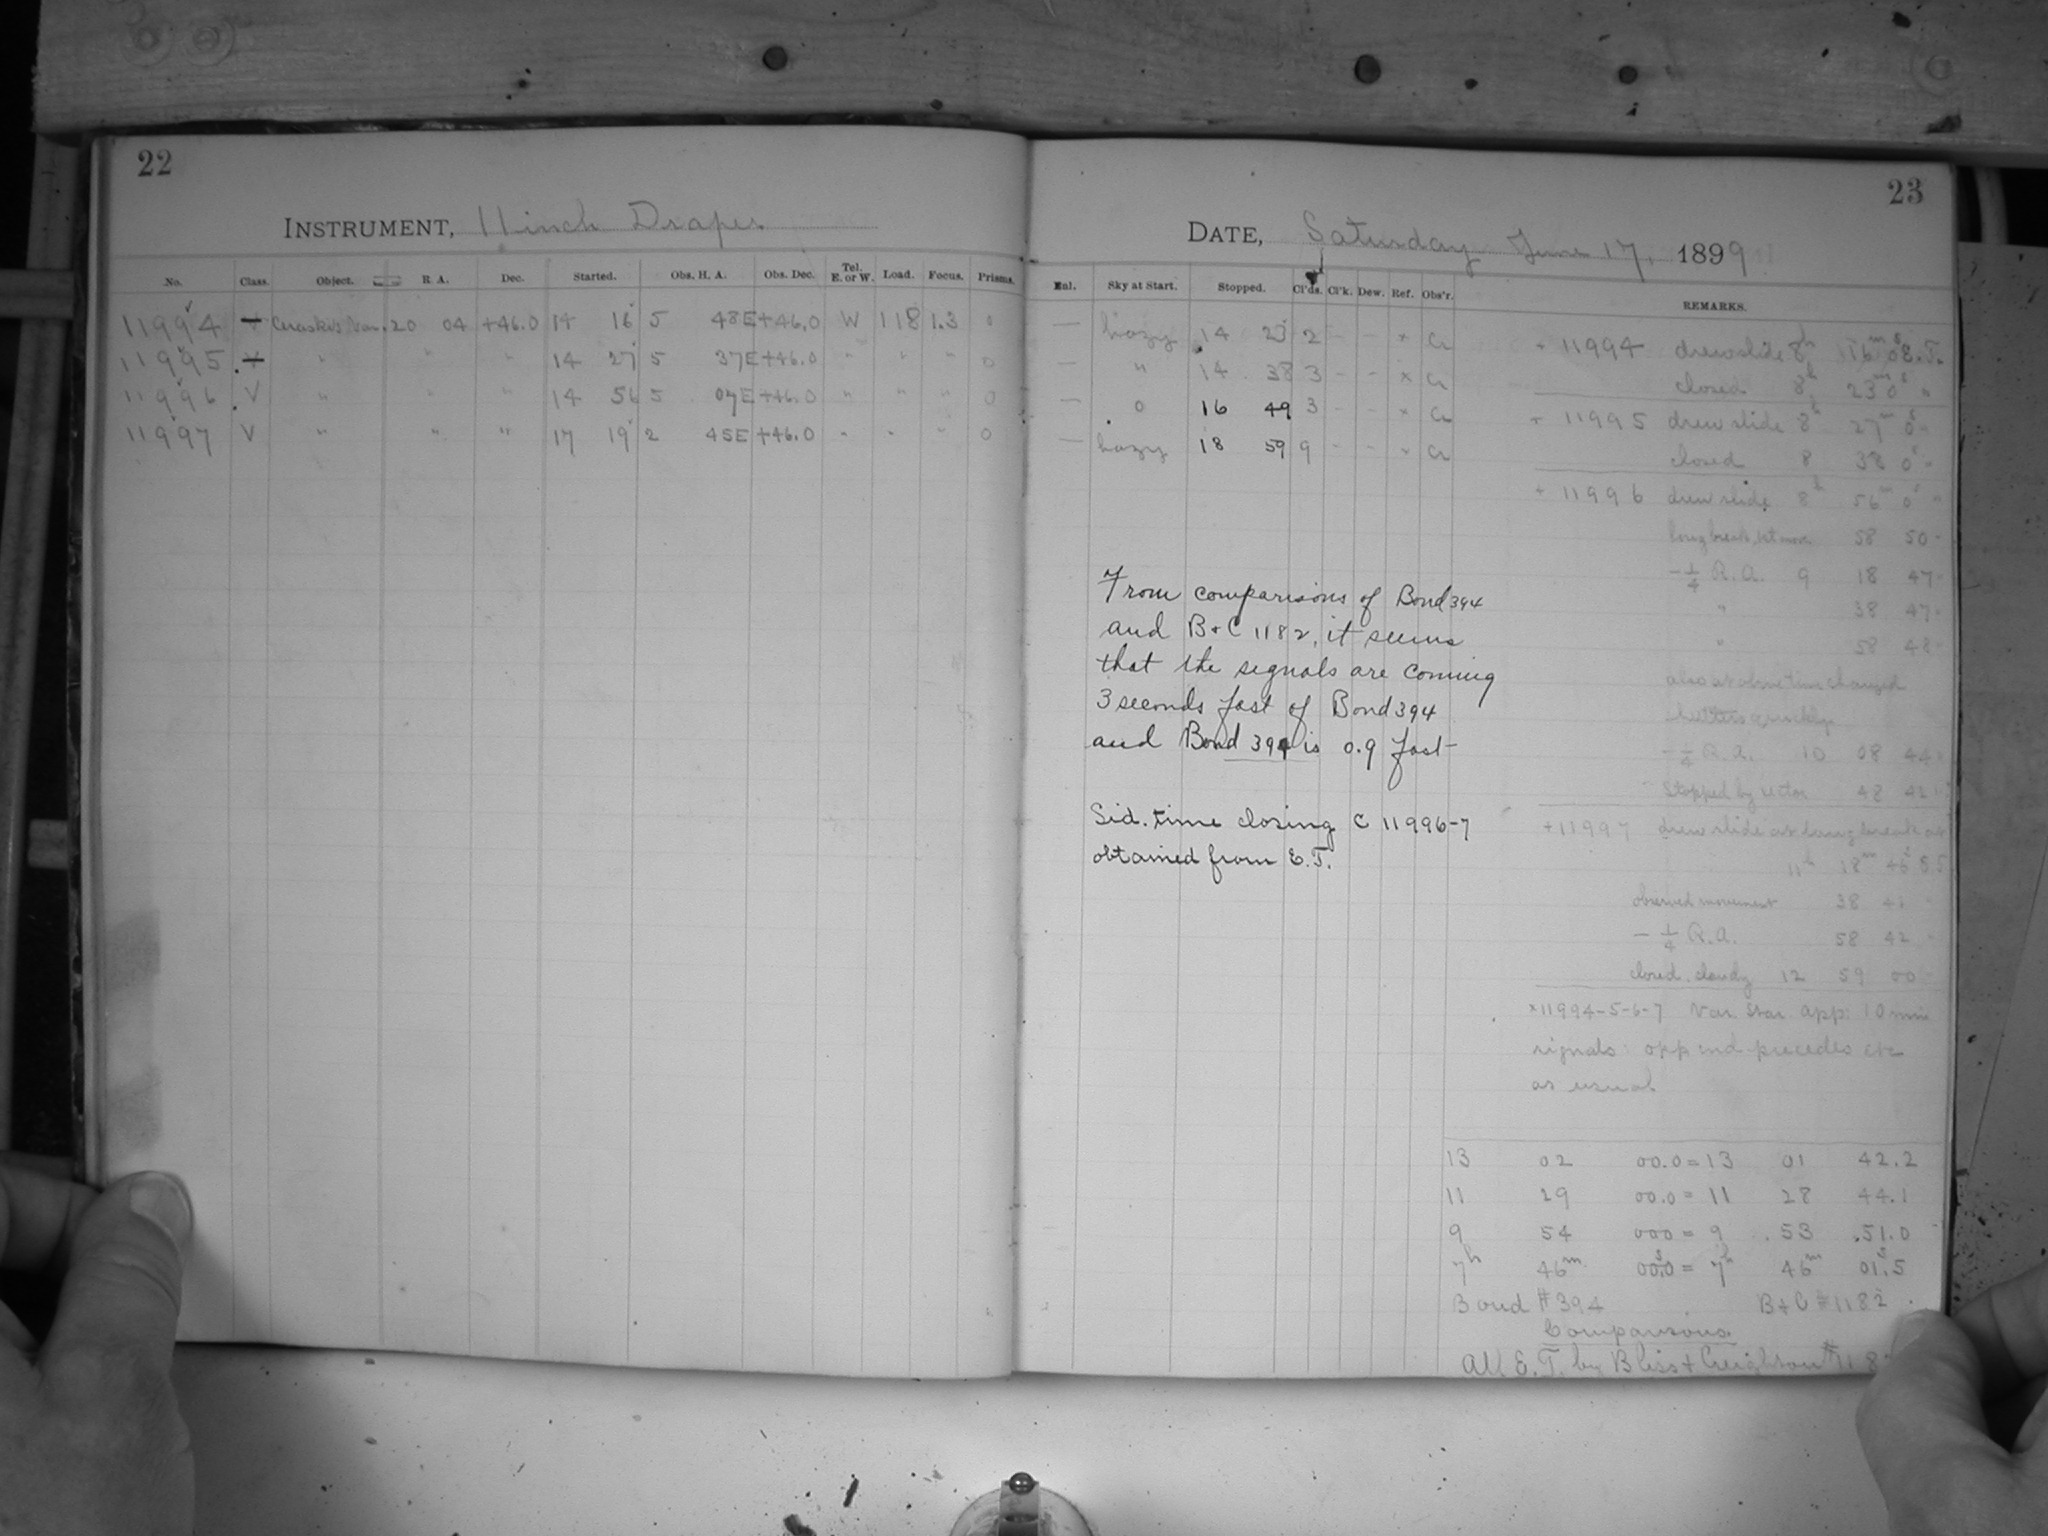 22
INSTRUMENT, 11 inch Draper
No. Class. Object. R. A. Dec. Started. Obs. H. A. Obs. Dec. Tel. E. or W. Load. Focus. Prisms.
11994 Ceraskis Var. 20 04 +46.0 14 16 5 48E +46.0 W 118 1.3 0
11995 " " " 14 27 5 37E +46.0 " " " 0
11996 V " " " 14 56 5 07E +46.0 " " " 0
11997 V " " " 17 19 2 45E +46.0 " " " 0
23
DATE, Saturday June 17, 1899
Enl. Sky at Start. Stopped. Cl'ds. Cl'k. Dew. Ref. Obs'r. REMARKS.
— hazy 14 23 2 - - x Cr
— " 14 38 3 - - x Cr
— 0 16 49 3 - - x Cr
— hazy 18 59 9 - - x Cr
From comparisons of Bond 394
and B+C 1182, it seems
that the signals are coming
3 seconds fast of Bond 394
and Bond 394 is 0.9 fast
Sid. time closing C 11996-7
obtained from E.T.
+ 11994 drew slide 8h 16m 0s S.T.
closed 8h 23m 0s "
+ 11995 drew slide 8h 27m 0s "
closed 8 38 0s "
+ 11996 drew slide 8h 56m 0s "
long break, 58 50 "
- 1/4 R.A. 9 18 47 "
" 38 47 "
" 58 48 "
also at above time changed
shutters quickly
- 1/4 R.A. 10 08 44 "
Stopped by 48 42 "
+ 11997 drew slide at long break at
11h 18m 46s
observed movement 38 41 "
- 1/4 R.A. 58 42 "
closed. cloudy 12 59 00 "
x 11994-5-6-7 Var. Star app: 10 min
signals: opp end precedes etc
as usual
13 02 00.0 = 13 01 42.2
11 29 00.0 = 11 28 44.1
9 54 000 = 9 53 51.0
7h 46m 00.0s = 7h 46m 01.5s
Bond #394 B+C #1182
Comparisons
All E.T. by Bliss + Creighton #118